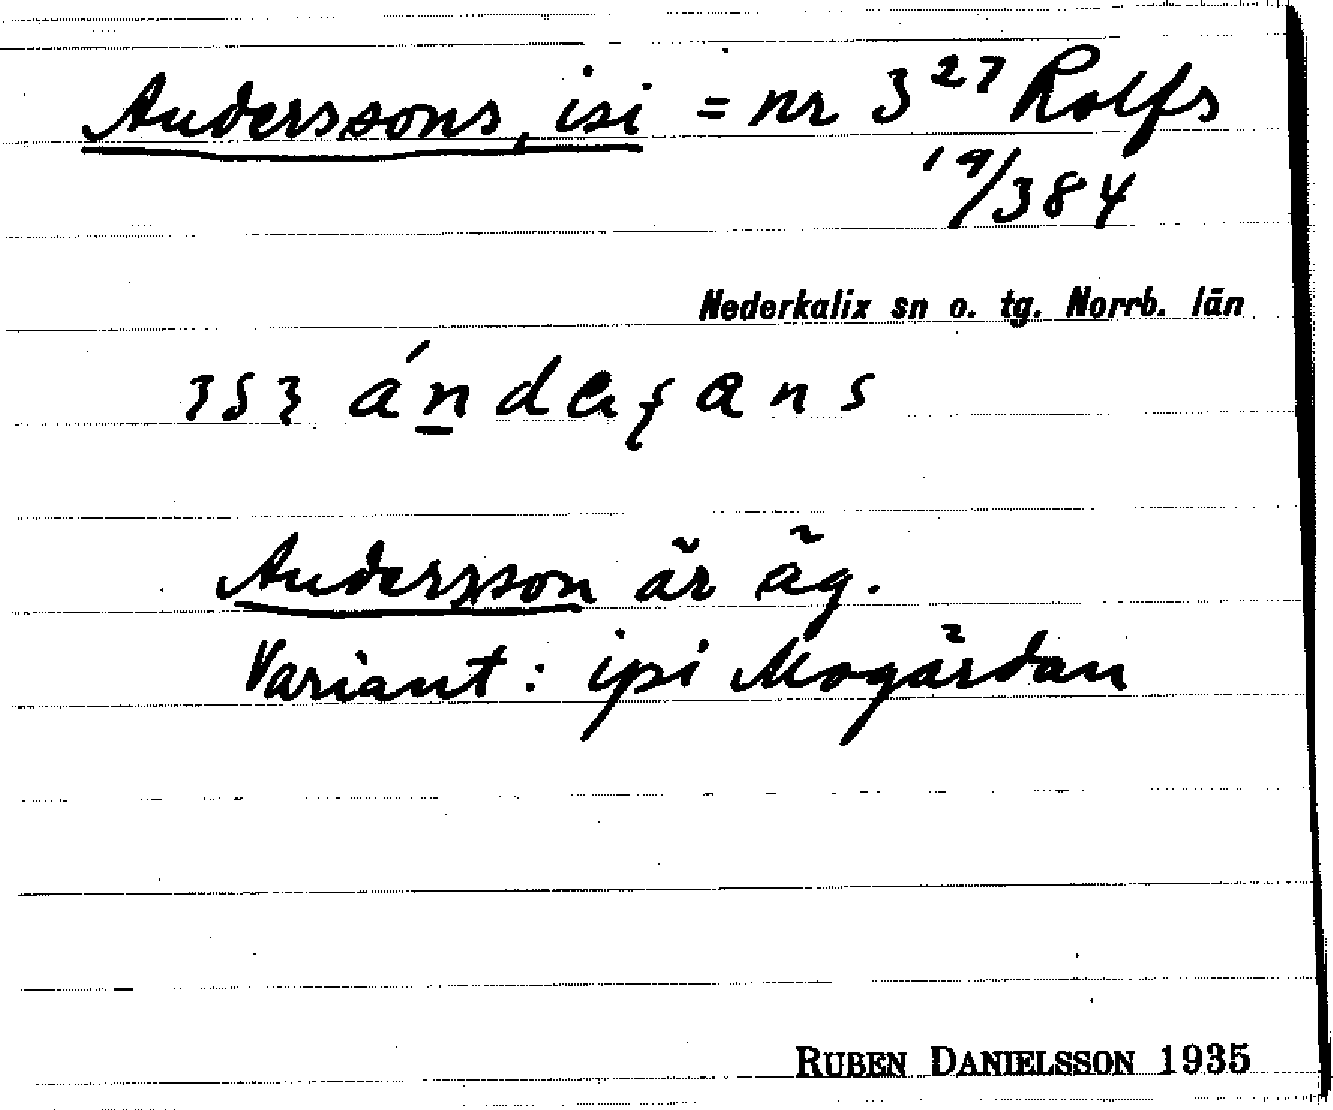 Anderssons, isi = nr 3²⁷ Rolfs
19/384
Nederkalix sn o. tg. Norrb. län
Andersson är äg.
Variant: ipi Mogårdan
RUBEN DANIELSSON 1935